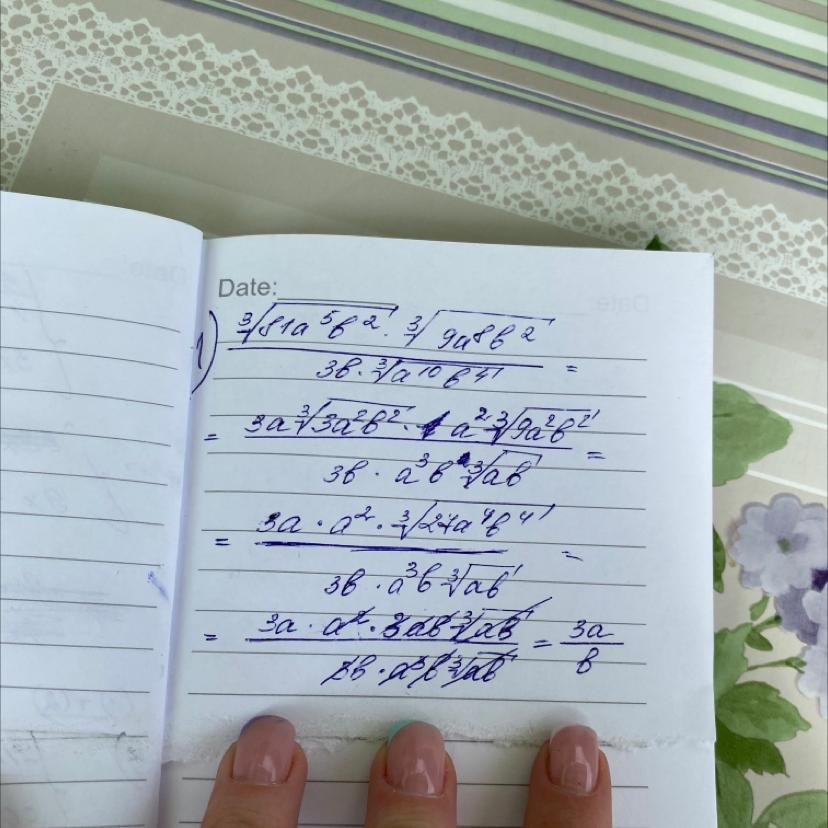 Date:
1) \frac{\sqrt[3]{81a^5b^2} \cdot \sqrt[3]{9a^8b^2}}{3b \cdot \sqrt[3]{a^{10}b^4}} =
= \frac{3a\sqrt[3]{3a^2b^2} \cdot a^2 \sqrt[3]{9a^2b^2}}{3b \cdot a^3b\sqrt[3]{ab}} =
= \frac{3a \cdot a^2 \cdot \sqrt[3]{27a^4b^4}}{3b \cdot a^3b\sqrt[3]{ab}} =
= \frac{3a \cdot a^2 \cdot 3ab\sqrt[3]{ab}}{3b \cdot a^3b\sqrt[3]{ab}} = \frac{3a}{b}